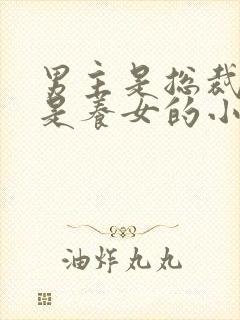 男主是总裁
是养女的小
油炸丸丸